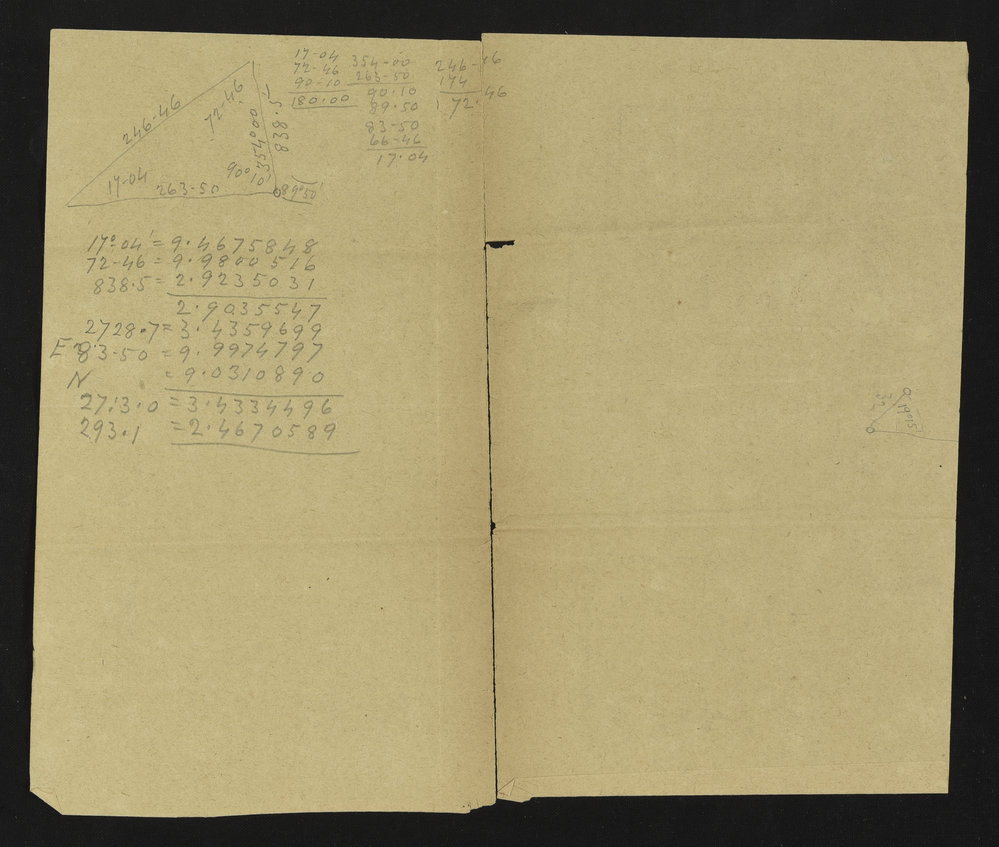 246-46
72-46
354°00
838.5
17-04
263-50
90°
10'
89°50'
17-04
72-46
90-10
180.00
354-00
263-50
90.10
89.50
83-50
66-46
17.04
246-46
174
72.46
17°-04' = 9.4675848
72-46 = 9.9800516
838.5 = 2.9235031
2.9035547
2728.7 = 3.4359699
E 83-50 = 9.9974797
N = 9.0310890
2713.0 = 3.4334496
293.1 = 2.4670589